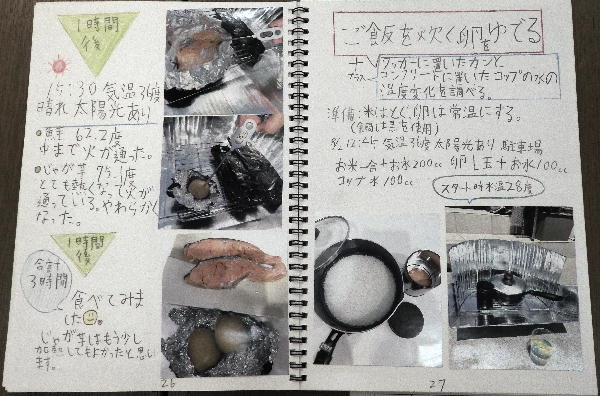 1時間
後
15:30 気温36度
晴れ 太陽光あり
•鮭 62.2度
中まで火が通った。
•じゃが芋 75.1度
とても熱くなった。火が
通っている。やわらかく
なった。
1時間
後
合計
3時間
食べてみま
した。
じゃが芋はもう少し
加熱してもよかったと思い
ます。
26
ご飯を炊く卵をゆでる
+
プラス
クッカーに置いたカンと
コンクリートに置いたコップの水の
温度変化を調べる。
準備:米はとぐ、卵は常温にする。
(鍋は黒を使用)
12:45 気温36度 太陽光あり 駐車場
お米一合+お水200cc 卵1玉+お水100cc
コップ水100cc
スタート時水温28度
27